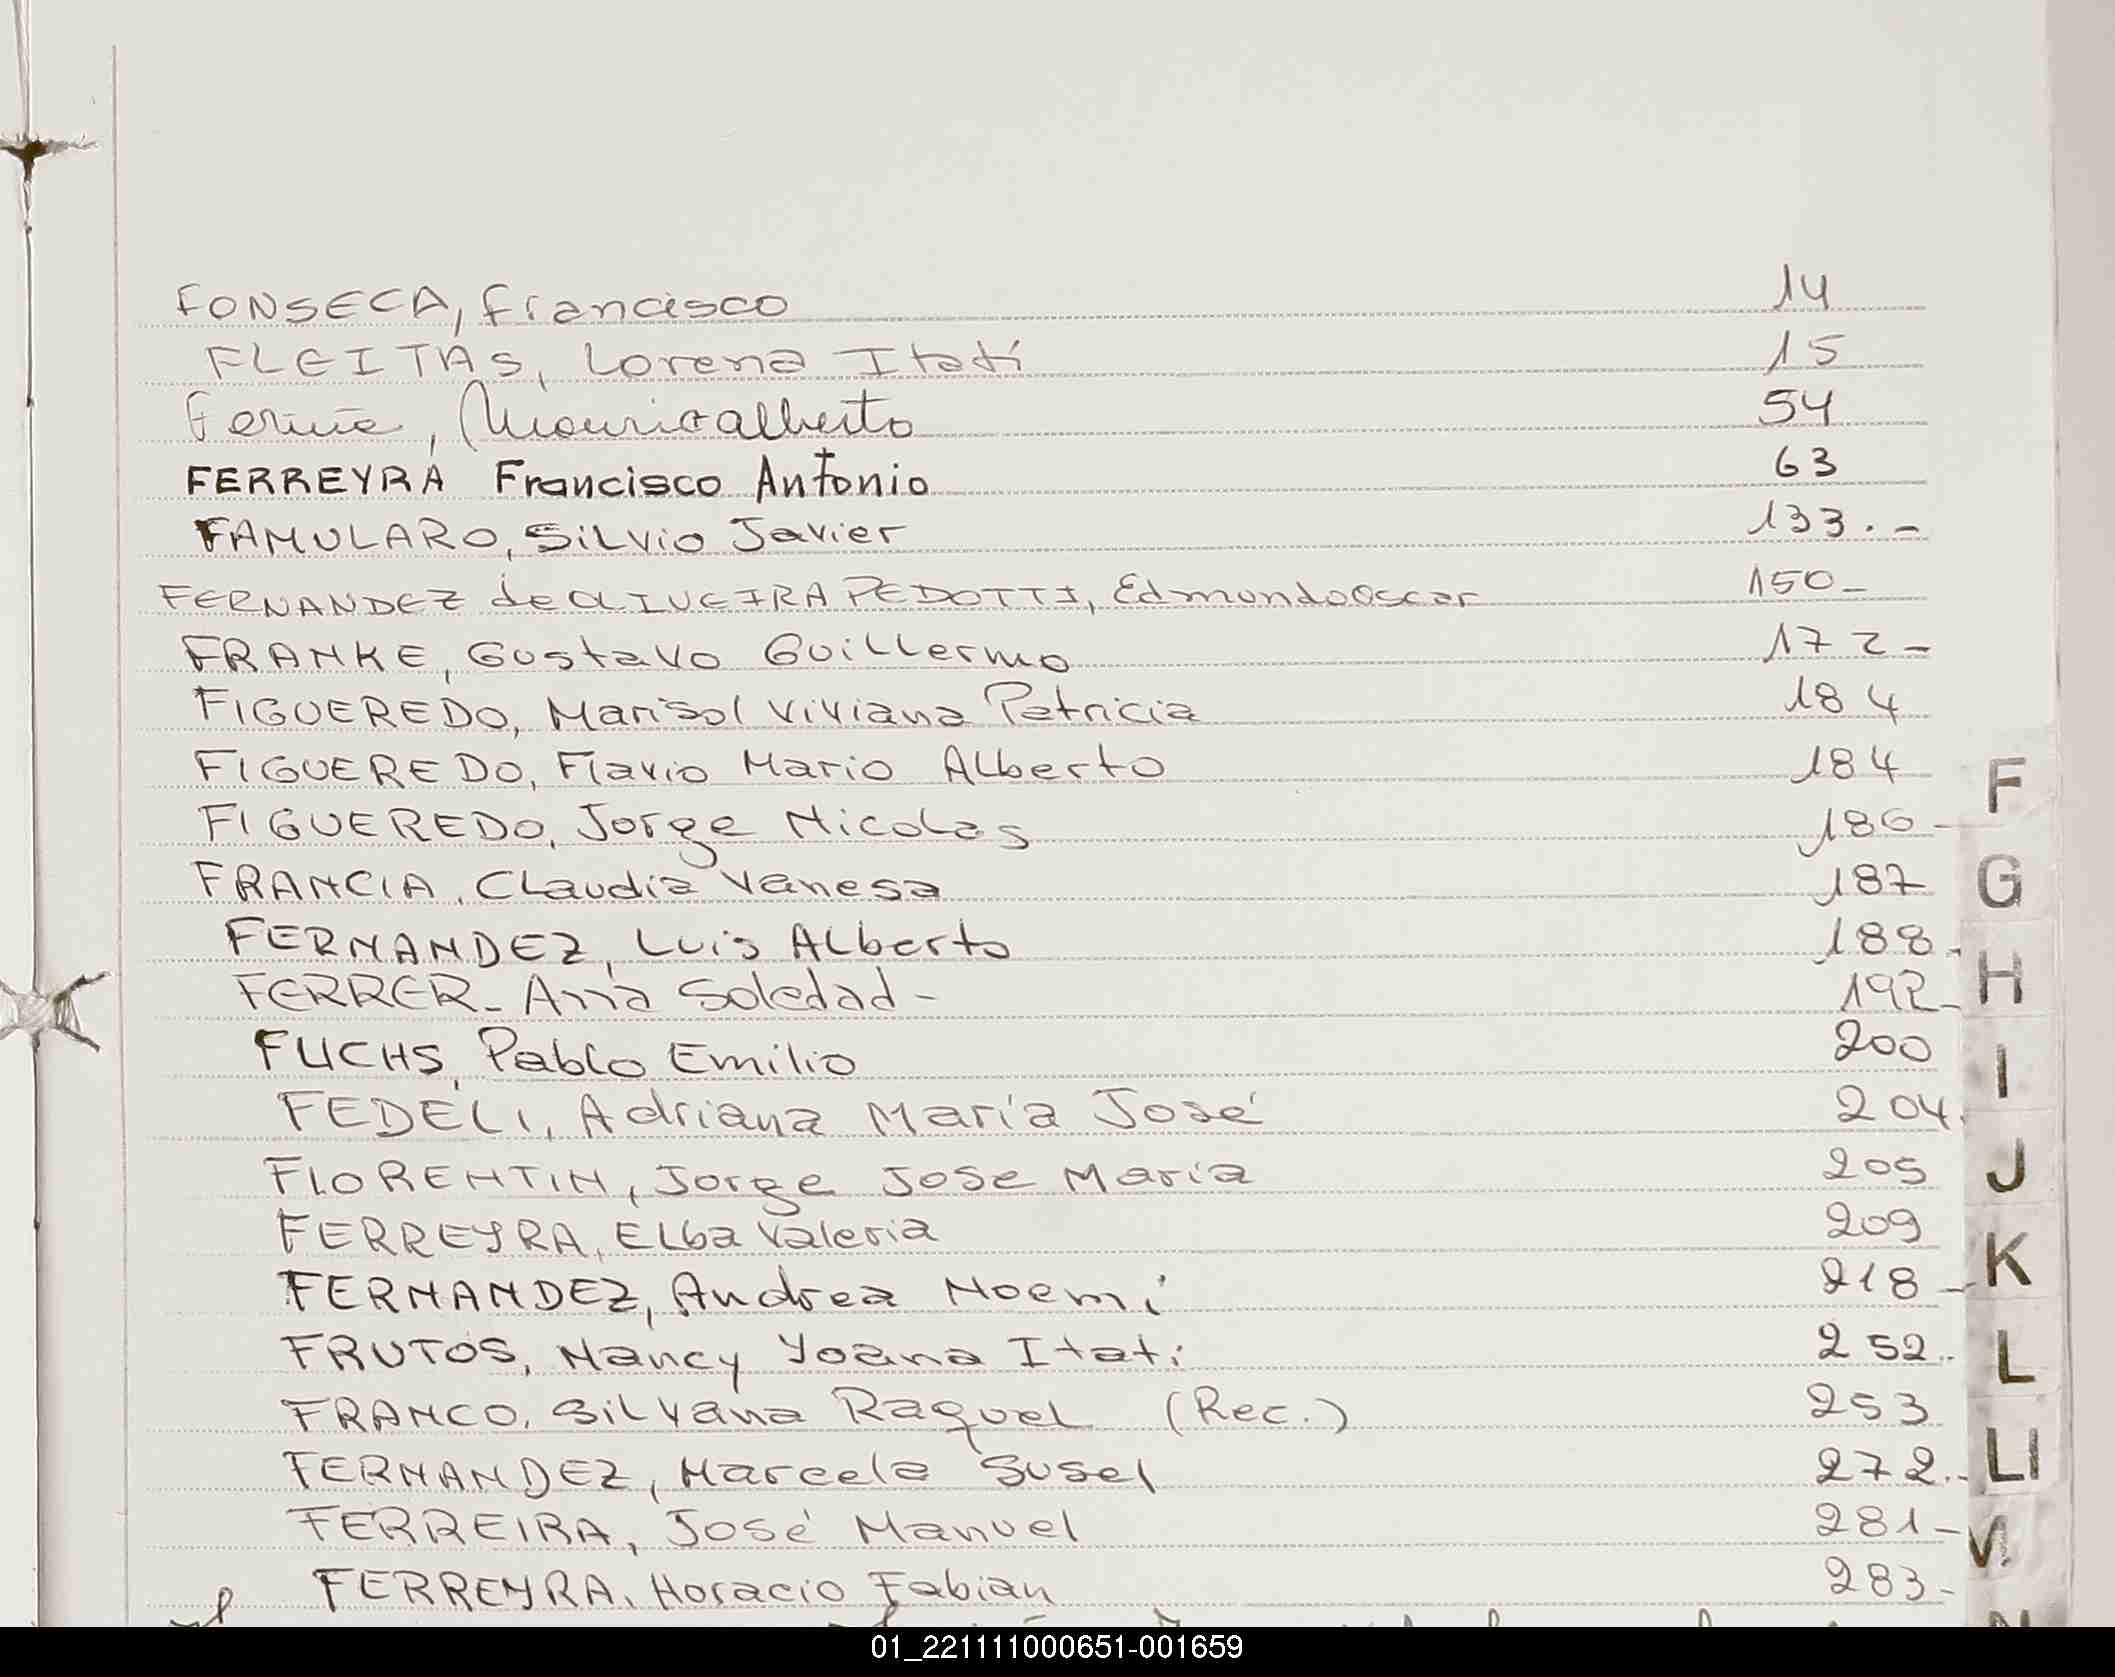 FONSECA, Francisco 14
FLEITAS, Lorena Itatí 15
54
FERREYRA Francisco Antonio 63
FAMULARO, Silvio Javier 133.-
FERNANDEZ de OLIVEIRA PEDOTTI, Edmundo Oscar 150-
FRANKE, Gustavo Guillermo 172-
FIGUEREDO, Marisol Viviana Patricia 184
FIGUEREDO, Flavio Mario Alberto 184
FIGUEREDO, Jorge Nicolas 186-
FRANCIA, Claudia Vanesa 187
FERNANDEZ, Luis Alberto 188.
FERRER- Ana Soledad- 192-
FUCHS, Pablo Emilio 200
FEDELI, Adriana María José 204.
FLORENTIN, Jorge Jose Maria 205
FERREYRA, Elba Valeria 209
FERNANDEZ, Andrea Noemi 218-
FRUTOS, Nancy Yoana Itati 252..
FRANCO, Silvana Raquel (Rec.) 253
FERNANDEZ, Marcela Susel 272.-
FERREIRA, José Manuel 281-
FERREYRA, Horacio Fabian 283-
F
G
H
I
J
K
L
Ll
01_221111000651-001659